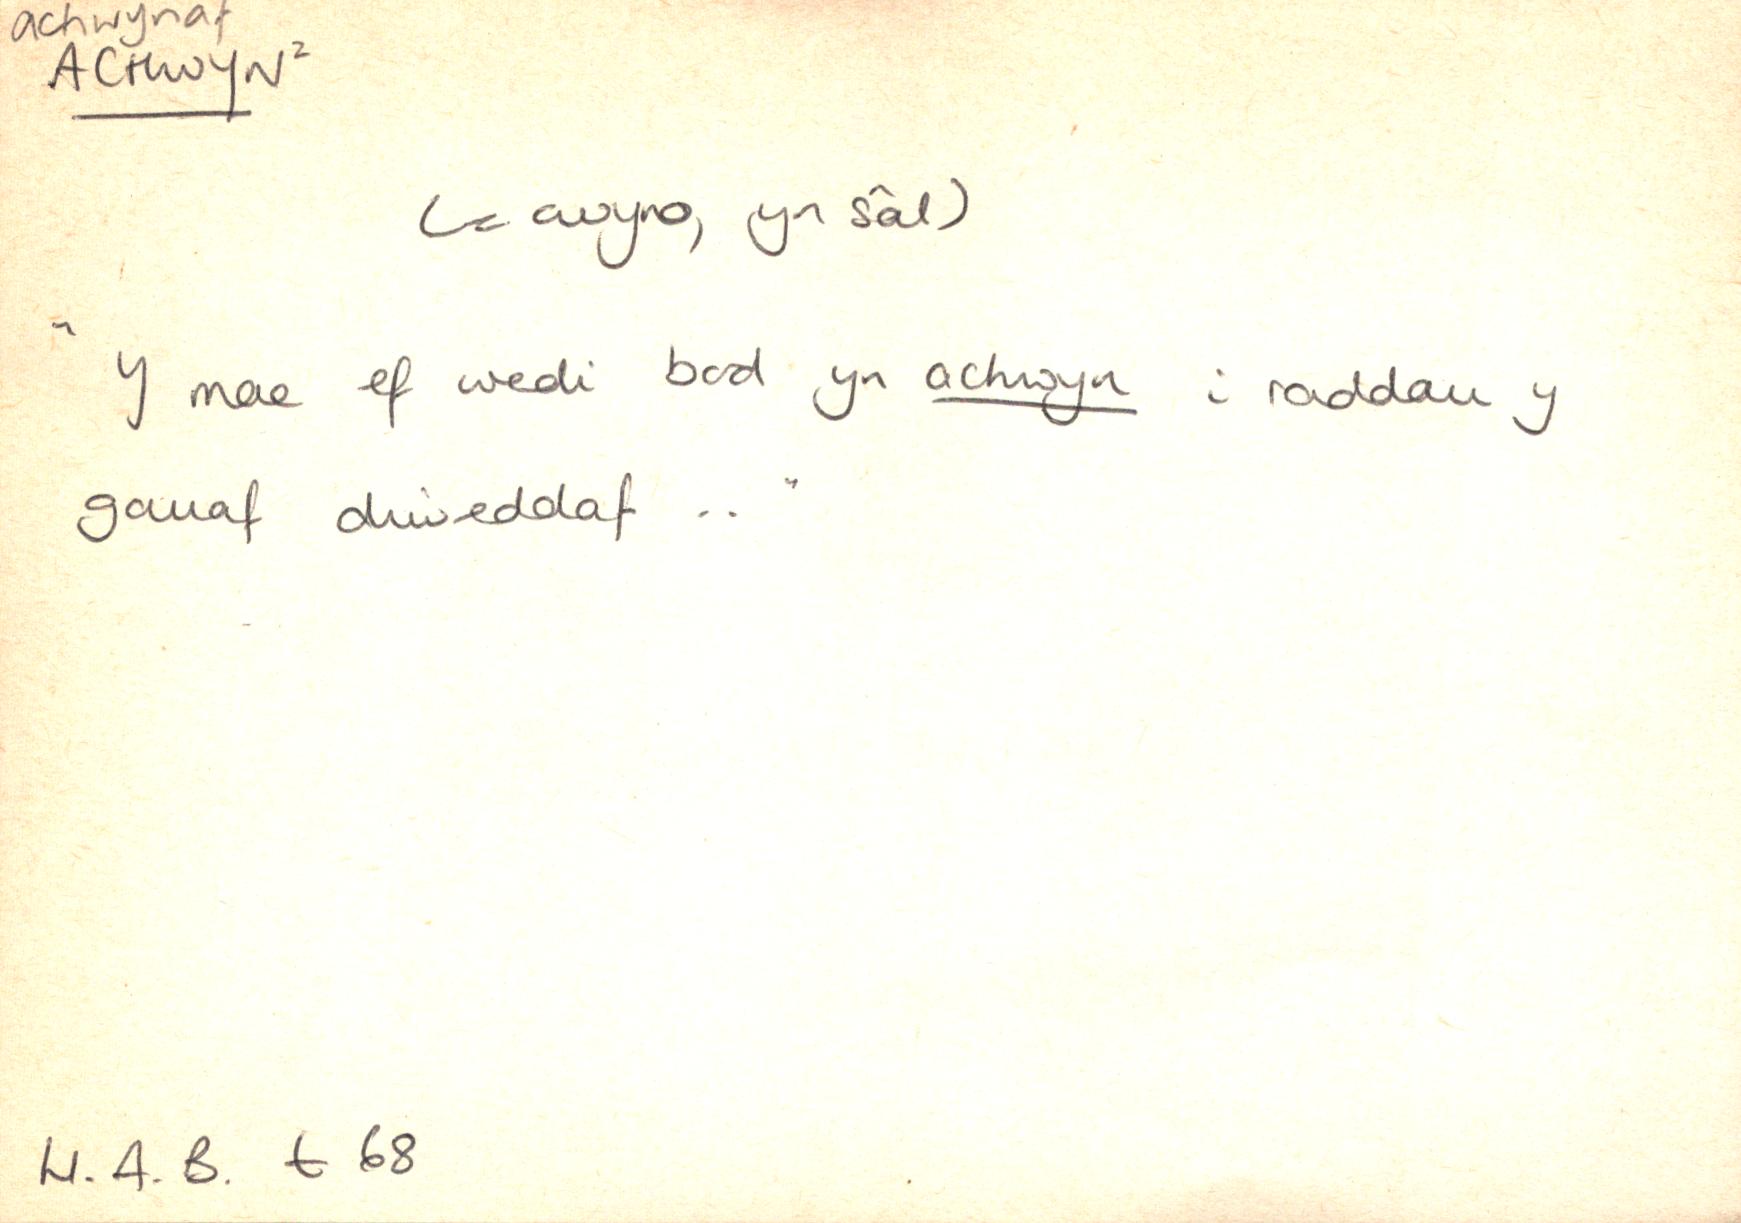 achwynaf
ACHWYN²
(= cwyno, yn sâl)
"Y mae ef wedi bod yn achwyn i raddau y
gauaf diweddaf .."
Ll. A. B. t 68